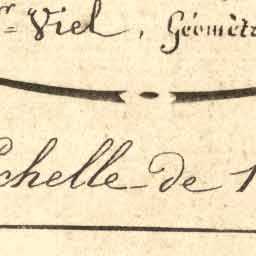 r Viel, Géomètr
chelle de 1